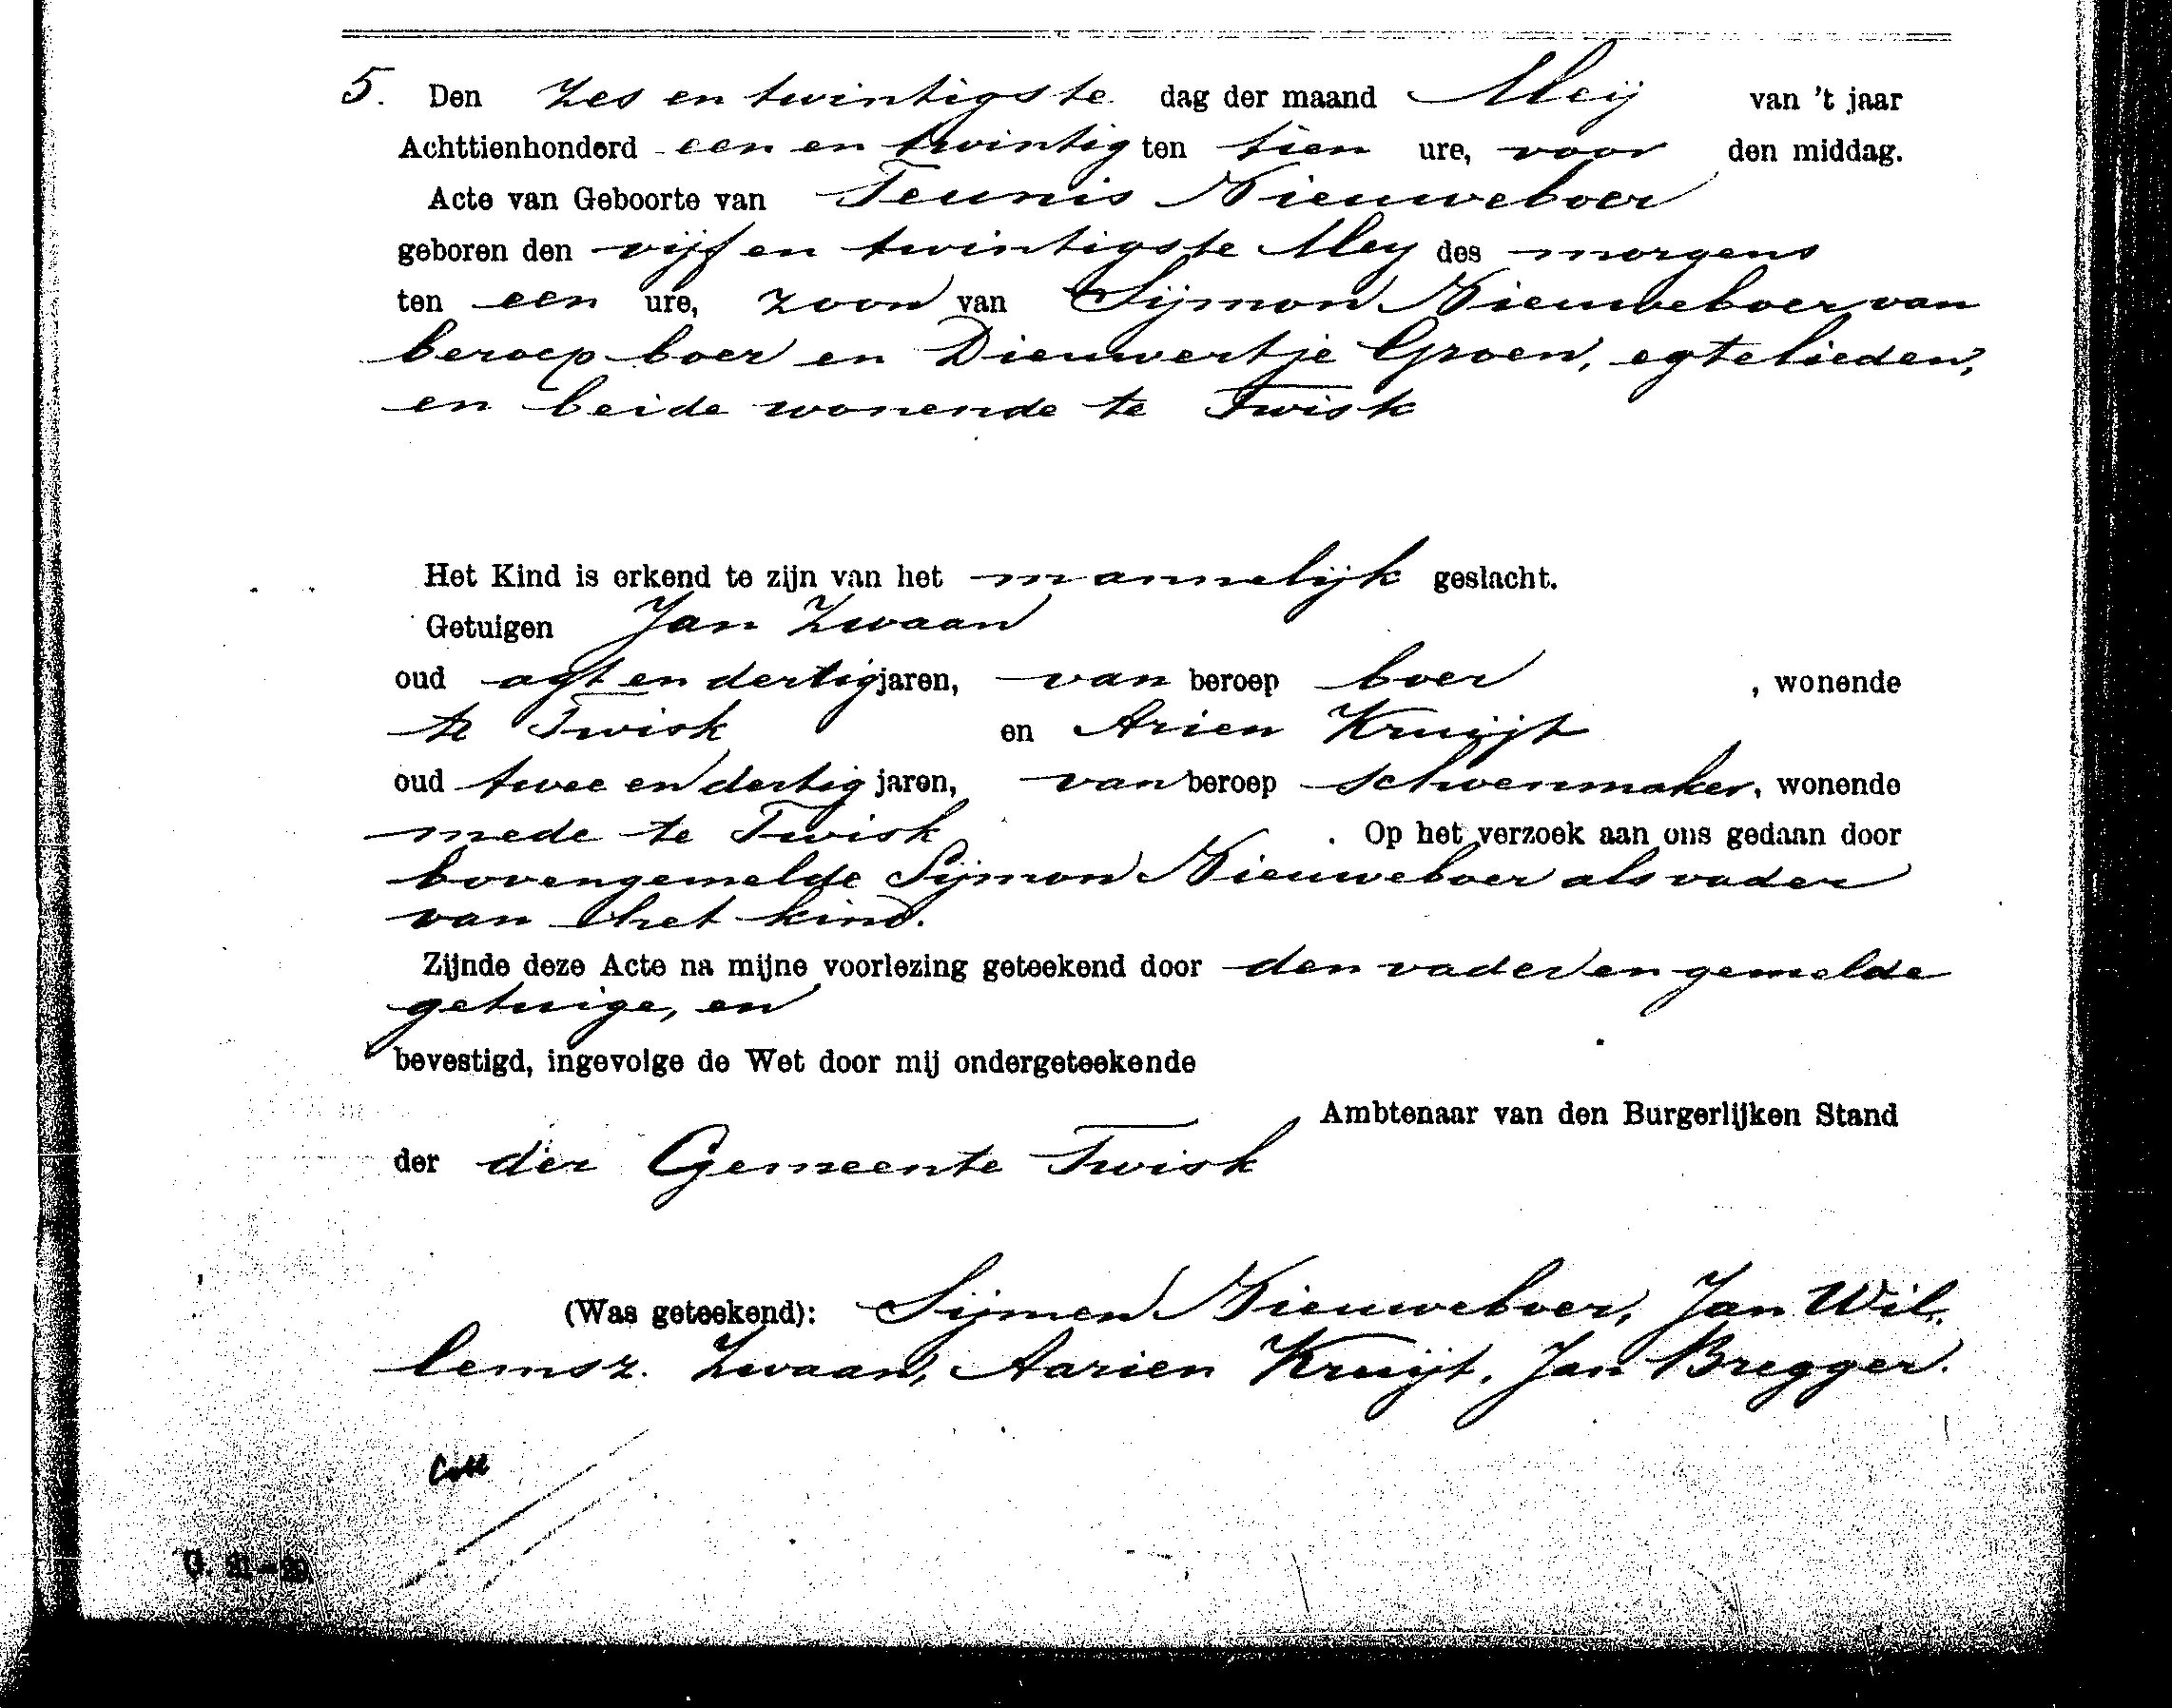 5. Den zes en twintigste dag der maand Meij van 't jaar
Achttienhonderd een en twintig ten tien ure, voor den middag.
Acte van Geboorte van Teunis Nieuweboer
geboren den vijf en twintigste Mey des morgens
ten een ure, zoon van Sijmon Nieuweboer van
beroep boer en Dieuwertje Groen, egtelieden,
en beide wonende te Twisk
Het Kind is erkend te zijn van het mannelijk geslacht.
Getuigen Jan Zwaan
oud agt en dertig jaren, van beroep boer , wonende
te Twisk en Arien Kruijt
oud twee en dertig jaren, van beroep schoenmaker, wonende
mede te Twisk . Op het verzoek aan ons gedaan door
bovengemelde Sijmon Nieuweboer als vader
van het kind.
Zijnde deze Acte na mijne voorlezing geteekend door den vader en gemelde
getuige, en
bevestigd, ingevolge de Wet door mij ondergeteekende
Ambtenaar van den Burgerlijken Stand
der der Gemeente Twisk
(Was geteekend): Sijmen Nieuweboer, Jan Wil,,
lemsz. Zwaan, Aarien Kruijt, Jan Bregger.
Coll